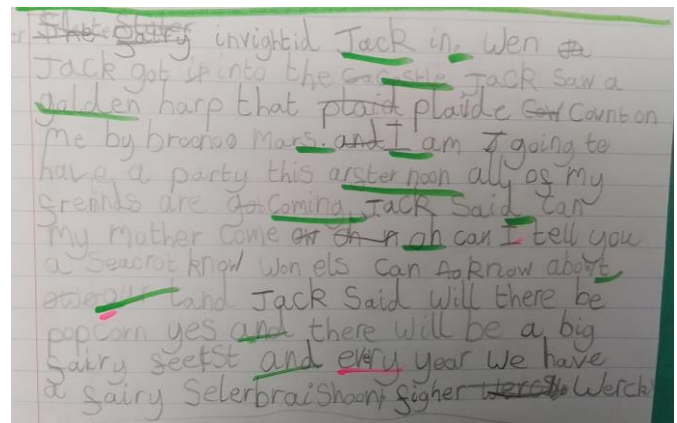 invightid Jack in. Wen
Jack got it into the castle Jack saw a
golden harp that plaid plaide Count on
me by broonoo Mars. and I am I going to
have a party this afster noon all of my
freinds are got coming Jack said can
my mother come oh can I tell you
a seacrot know won els can know about
land Jack said will there be
popcorn yes and there will be a big
fairy feetst and every year we have
a fairy Selerbraishoon figher Werck